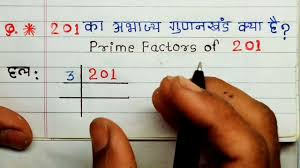 Q. * 201 का अभाज्य गुणनखंड क्या है?
Prime Factors of 201
हल: 3 201